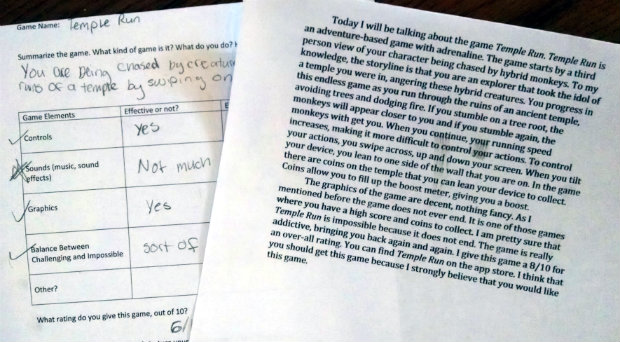 Game Name: Temple Run
Summarize the game. What kind of game is it? What do you do?
You are being chased by creatur
ruins of a temple by swiping on
Game Elements
Effective or not?
E
Controls
yes
Sounds (music, sound
effects)
Not much
Graphics
yes
Balance Between
Challenging and Impossible
sort of
Other?
What rating do you give this game, out of 10?
6/
Today I will be talking about the game Temple Run. Temple Run is
an adventure-based game with adrenaline. The game starts by a third
person view of your character being chased by hybrid monkeys. To my
knowledge, the storyline is that you are an explorer that took the idol of
a temple you were in, angering these hybrid creatures. You progress in
this endless game as you run through the ruins of an ancient temple,
avoiding trees and dodging fire. If you stumble on a tree root, the
monkeys will appear closer to you and if you stumble again, the
monkeys with get you. When you continue, your running speed
increases, making it more difficult to control your actions. To control
your actions, you swipe across, up and down your screen. When you tilt
your device, you lean to one side of the wall that you are on. In the game
there are coins on the temple that you can lean your device to collect.
Coins allow you to fill up the boost meter, giving you a boost.
The graphics of the game are decent, nothing fancy. As I
mentioned before the game does not ever end. It is one of those games
where you have a high score and coins to collect. I am pretty sure that
Temple Run is impossible because it does not end. The game is really
addictive, bringing you back again and again. I give this game a 8/10 for
an over-all rating. You can find Temple Run on the app store. I think that
you should get this game because I strongly believe that you would like
this game.